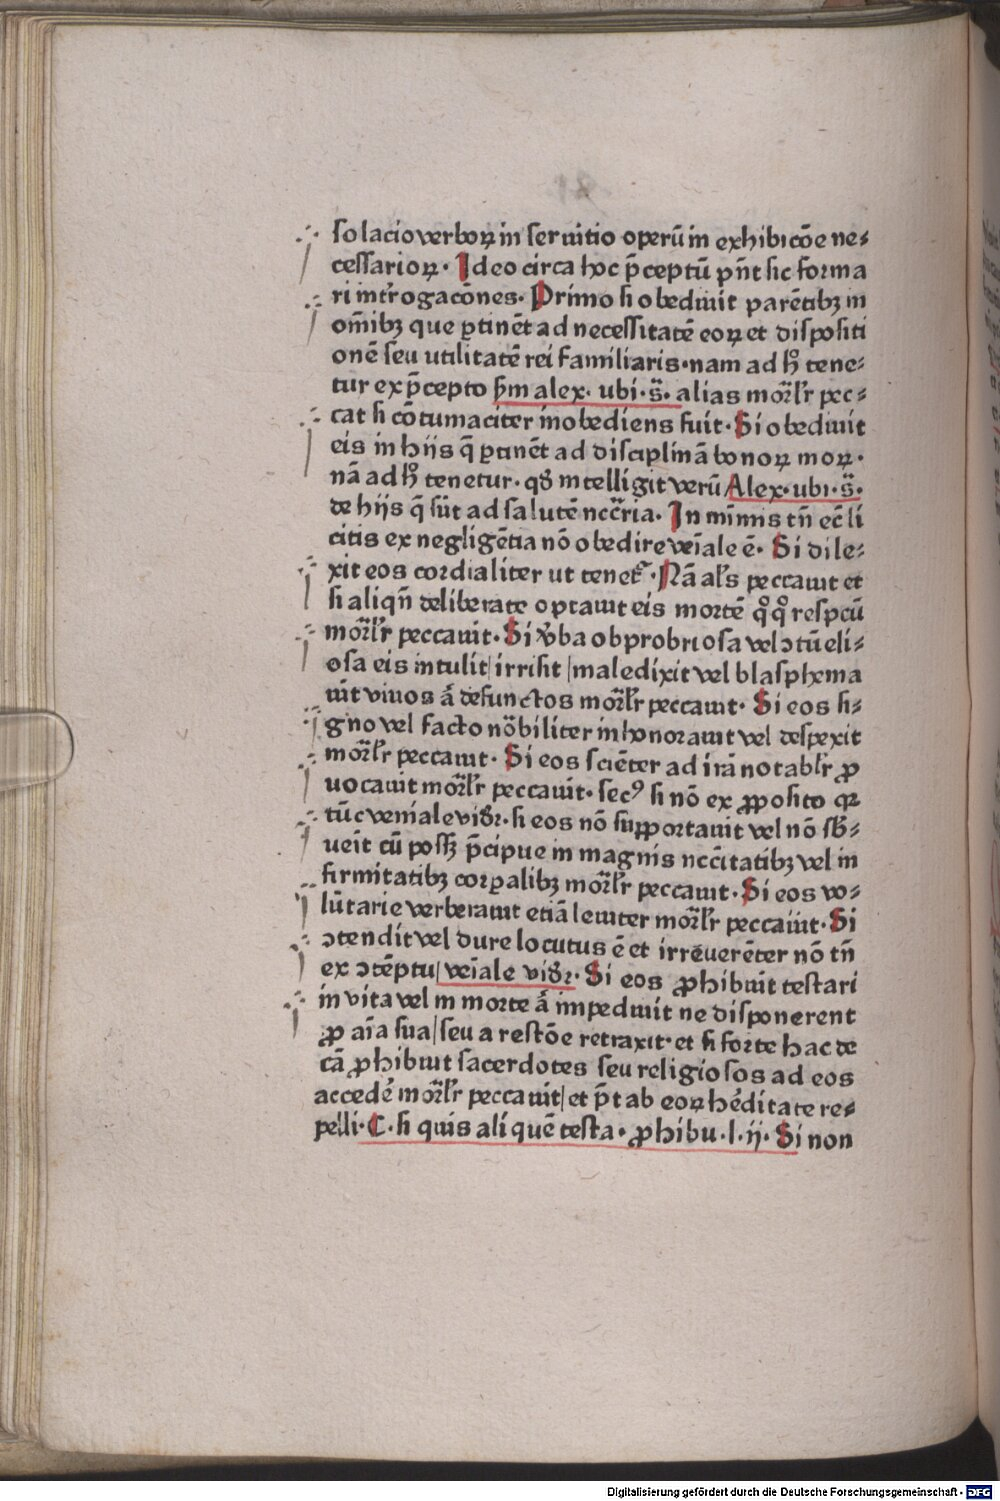 solacio verboꝝ in seruitio operū in exhibicōe ne⸗
cessarioꝝ· Ideo circa hoc p̄ceptū pn̄t sic forma
ri int̄rogacōnes· Primo si obediuit parētibꝫ in
om̄ibꝫ que ꝑtinēt ad necessitatē eoꝝ et dispositi
onē seu utilitatē rei familiaris·nam ad hͦ tene⸗
tur ex p̄cepto s̄m alex· ubi·s̄· alias mor̄lr pec⸗
cat si cōtumaciter inobediens fuit·Si obediuit
eis in hijs q̄ ꝑtinēt ad disciplinā bonoꝝ moꝝ·
nā ad hͦ tenetur·qd̕ intelligit verū Alex·ubi·s̄·
de hijs q̄ sūt ad salutē ncc̄ria· In mīmis tn̄ ec̄ li
citis ex negligētia nō obedire vēiale ē· Si dile⸗
xit eos cordialiter ut tenet᷑·Nā al̕s peccauit et
si aliqn̄ deliberate optauit eis mortē qͦqͦ respcū
mor̄lr peccauit·Si v̕ba obprobriosa vel ↄtūeli⸗
osa eis intulit/irrisit/maledixit vel blasphema
uit viuos ā defunctos mor̄lr peccauit· Si eos si⸗
gno vel facto nōbiliter inhonorauit vel despexit
mor̄lr peccauit· Si eos sciēter ad irā notabl̕r ꝓ
uocauit mor̄lr peccauit· secꝰ si nō ex ꝓposito qꝛ
tūc veniale vid̕r·si eos nō supportauit vel nō sb̄⸗
ueit cū possꝫ p̄cipue in magnis ncc̄itatibꝫ vel in
firmitatibꝫ corꝑalibꝫ mor̄lr peccauit·Si eos vo⸗
lūtarie verberauit etiā leuiter mor̄lr peccauit·Si
ↄtendit vel dure locutus ē et irreuerēter nō tn̄
ex ↄtēptu/vēiale vid̕r·Si eos ꝓhibuit testari
in vita vel in morte ā impediuit ne disponerent
ꝓ aīa sua/seu a restōe retraxit·et si forte hac de
cā ꝓhibuit sacerdotes seu religiosos ad eos
accedē mor̄lr peccauit/et p̄t ab eoꝝ hēditate re⸗
pelli·C·si quis aliquē testa·ꝓhibu·l·ij·Si non
Digitalisierung gefördert durch die Deutsche Forschungsgemeinschaft - DFG